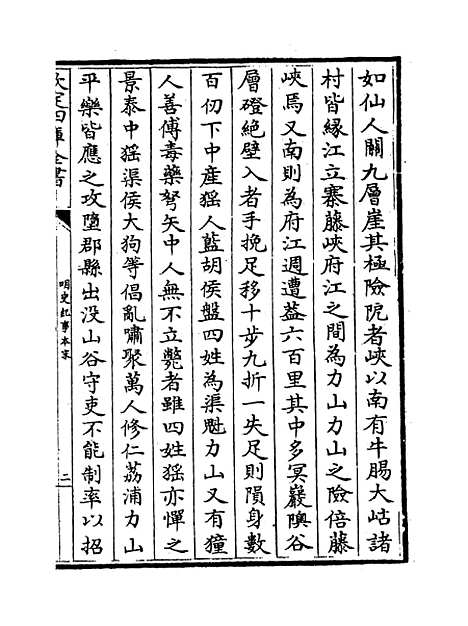 如仙人關九層崖其極險阨者峽以南有牛腸大岵諸
村皆縁江立寨藤峽府江之間為力山力山之險倍藤
峽焉又南則為府江週遭葢六百里其中多冥巖隩谷
層磴絶壁入者手挽足移十步九折一失足則隕身數
百仞下中産猺人藍胡侯盤四姓為渠魁力山又有獞
人善傅毒藥弩矢中人無不立斃者雖四姓猺亦憚之
景泰中猺渠侯大狗等倡亂嘯聚萬人修仁荔浦力山
平樂皆應之攻墮郡縣出没山谷守吏不能制率以招
欽定四庫全書
明史紀事本末
二